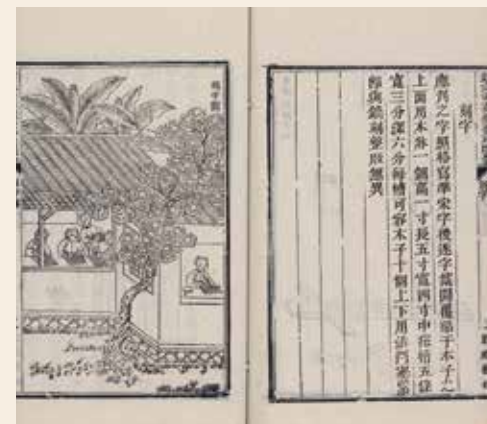 刻字
應刋之字照格寫準宋字後逐字裁開覆貼于木子之
上面用木牀一個高一寸長五寸寬四寸中挖槽五條
寬三分深六分每槽可容木子十個上下用活閂塞緊
卽與鐫刻整版無異
刻字圖